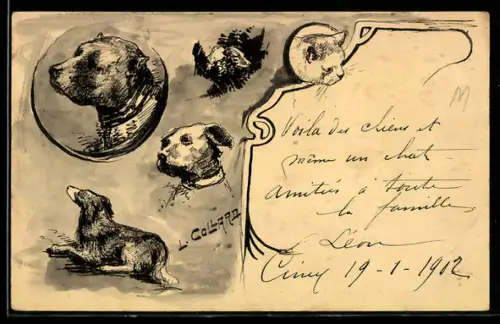 Voila des chiens et
même un chat
amitiés à toute
la famille
Léon
Ciney 19-1-1902
L. COLLARD